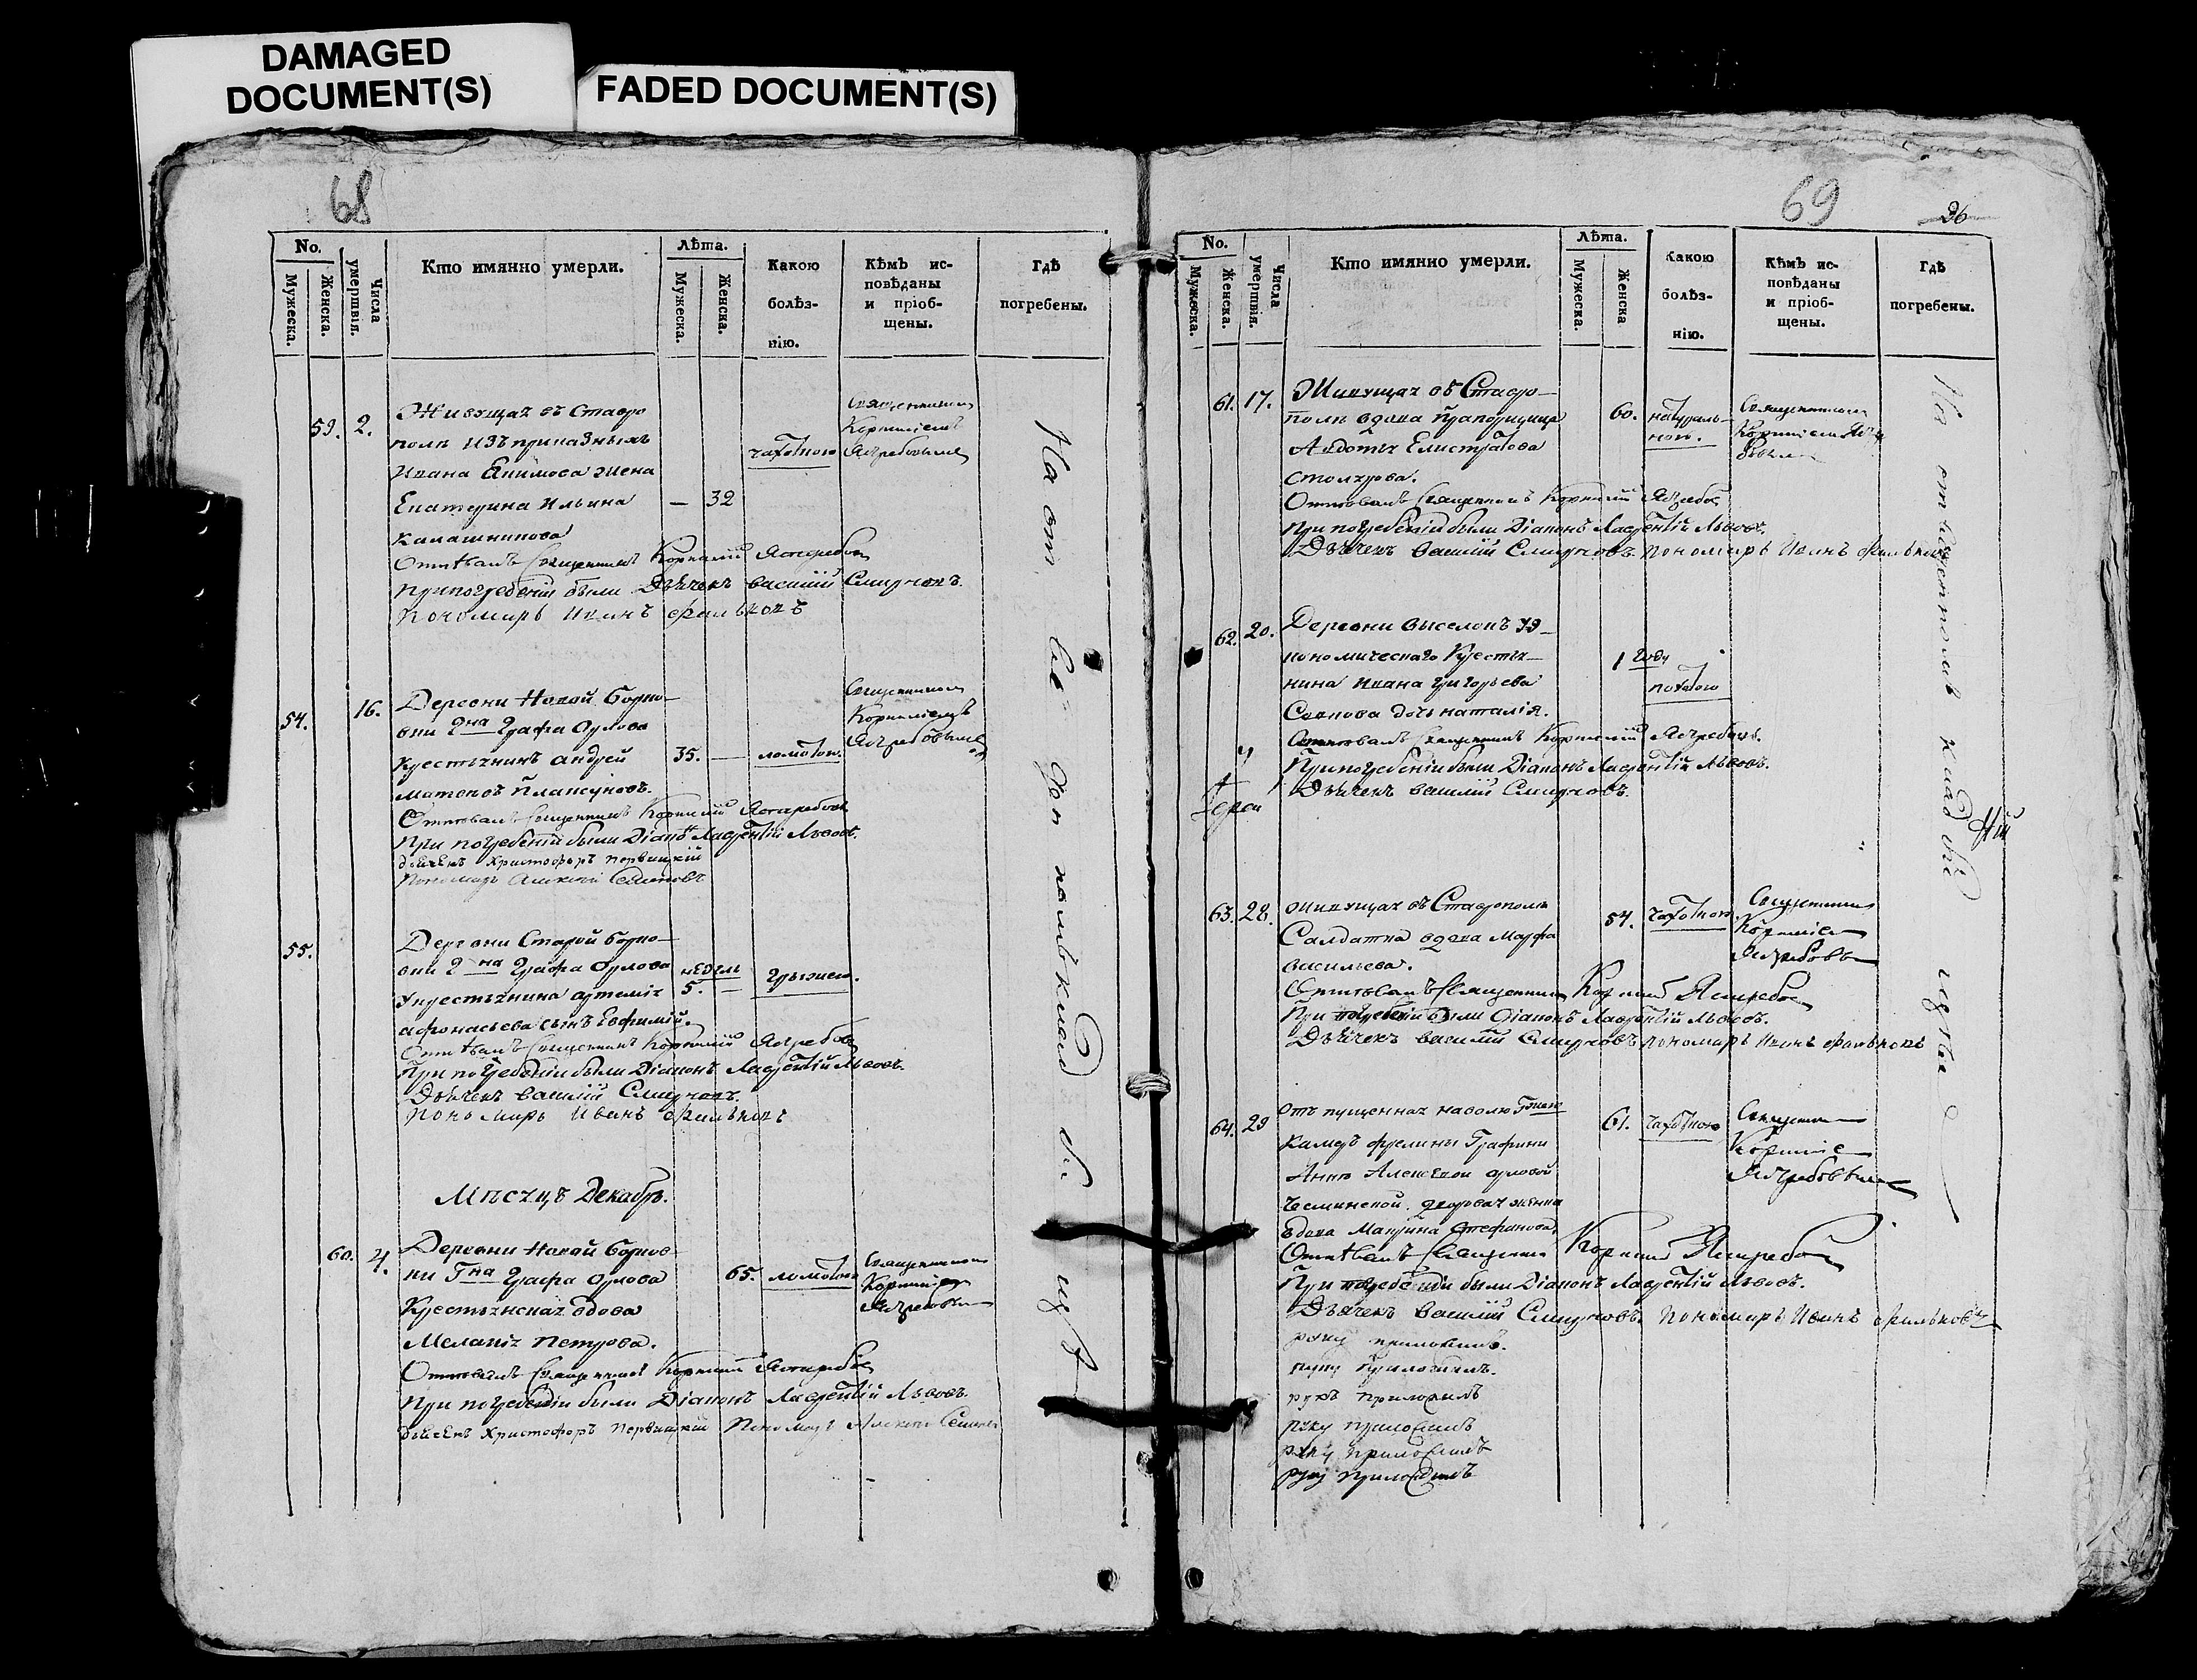 DAMAGED
DOCUMENT(S)
FADED DOCUMENT(S)
68
No.
Мужеска.
Женска.
Числа умертвія.
Кто имянно умерли.
Лѣта.
Мужеска.
Женска.
Какою
болѣз-
нію.
Кѣмъ ис-
повѣданы
и пріоб-
щены.
Гдѣ
погребены.
59. 2. Живущая въ Ставро
полѣ изъ приказныхъ
Ивана жена
Екатерина Ильина — 32
Калашникова
чахоткою
Священникомъ
Корниліемъ
Ястребовымъ
Отпѣвалъ Священникъ Корнилій Ястребовъ
При погребеніи были Дьячекъ Василій Смирновъ.
Пономарь Иванъ Фальковъ
54. 16. Деревни Новой Борко
вки Гна Графа Орлова
Крестьянинъ Андрей 35. — ломотою.
Матвеевъ Плаксуновъ.
Священникомъ
Корниліемъ
Ястребовымъ
Отпѣвалъ Священникъ Корнилій Ястребовъ
При погребеніи были Діаконъ Лаврентій Львовъ.
дьячекъ Христофоръ Первицкій
Пономарь Алексей Семеновъ
55. Деревни Старой Борко-
вки Гна Графа Орлова недѣль
Укрестьянина Артемія 5. — грыжею.
Афонасьева сынъ Евфимій.
Отпѣвалъ Священникъ Корнилій Ястребовъ
При погребеніи были Діаконъ Лаврентій Львовъ.
Дьячекъ Василій Смирновъ.
Пономарь Иванъ Фальковъ
Мѣсяцъ Декабрь.
60. 4. Деревни Новой Борков
ки Гна Графа Орлова 65. ломотою
Крестьянская вдова
Меланія Петрова.
Священникомъ
Корниліемъ
Ястребовымъ
Отпѣвалъ Священникъ Корнилій Ястребовъ
При погребеніи были Діаконъ Лаврентій Львовъ.
дьячекъ Христофоръ Первицкій Пономарь Алексей Семеновъ
69
26
No.
Мужеска.
Женска.
Числа умертвія.
Кто имянно умерли.
Лѣта.
Мужеска.
Женска
Какою
болѣз-
нію.
Кѣмъ ис-
повѣданы
и пріоб-
щены.
Гдѣ
погребены.
61. 17. Живущая въ Ставро-
полѣ вдова Прапорщица 60. натураль-
ною.
Авдотья Елистратова
Столярова.
Священникомъ
Отпѣвалъ Священникъ Корнилій Ястребовъ
При погребеніи были Діаконъ Лаврентій Львовъ.
Дьячекъ Василій Смирновъ. Пономарь Иванъ Фальковъ
62. 20. Деревни Выселокъ Эко-
номическаго Крестья- 1 году
нина Ивана Григорьева
дочь Наталія.
Отпѣвалъ Священникъ Корнилій Ястребовъ.
При погребеніи были Діаконъ Лаврентій Львовъ.
Дьячекъ Василій Смирновъ.
63. 28. Живущая въ Ставрополѣ
Салдатка вдова Марфа 54. чахоткою.
Васильева.
Священникомъ
Корниліемъ
Ястребовымъ
Отпѣвалъ Священникъ Корнилій Ястребовъ
При погребеніи были Діаконъ Лаврентій Львовъ.
Дьячекъ Василій Смирновъ Пономарь Иванъ Фальковъ
64. 29 Отпущенная на волю Гпжею
Камеръ фрелины Графини 61. чахоткою
Анны Алексеевой Орловой
Чесминской. дворовая женка
вдова Маврина Стефанова,
Священникомъ
Корниліемъ
Ястребовымъ
Отпѣвалъ Священникъ Корнилій Ястребовъ
При погребеніи были Діаконъ Лаврентій Львовъ.
Дьячекъ Василій Смирновъ. Пономарь Иванъ Фальковъ
руку приложилъ.
руку приложилъ.
руку приложилъ
руку приложилъ
руку приложилъ
руку приложилъ